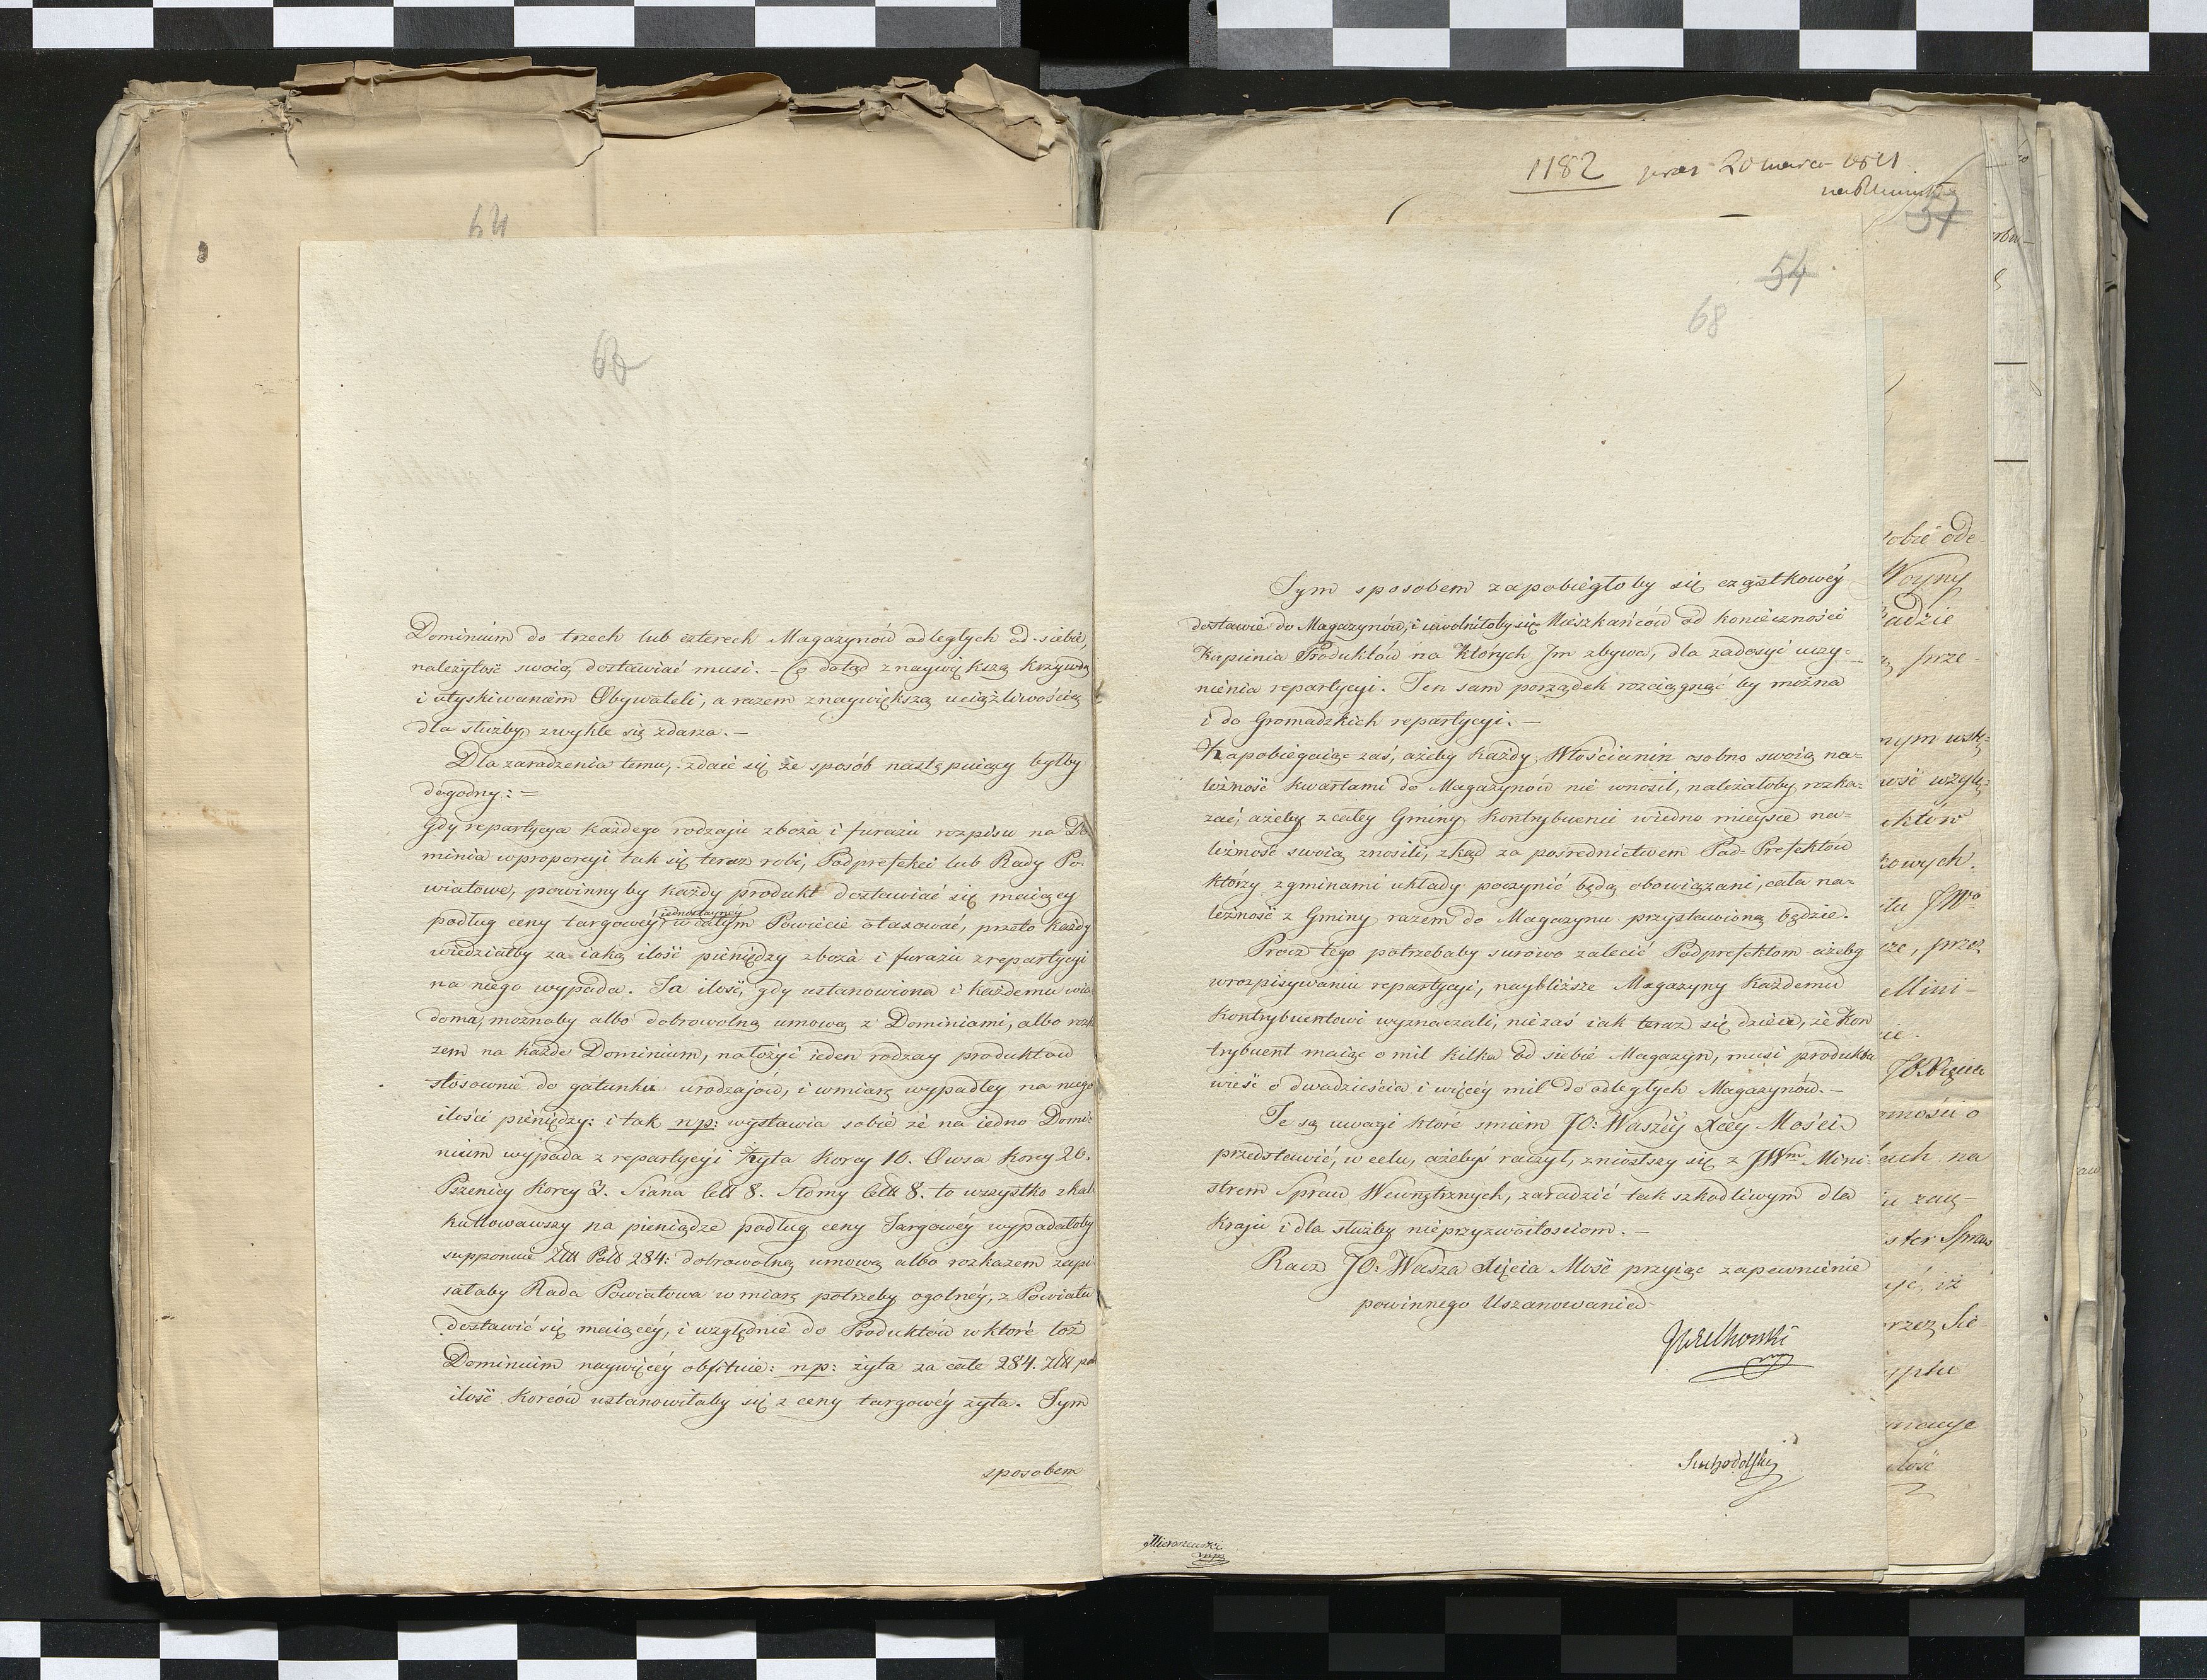 64
66
Dominium do trzech lub czterech Magazynów odległych od siebie,
należytość swoią dostawiać musi. – Co dotąd z naywiększą krzywdą
i utyskiwaniem Obywateli, a razem z naywiększą uciążliwością
dla służby, zwykle się zdarza. –
Dla zaradzenia temu, zdaie się że sposób następuiący byłby
dogodny: =
Gdy repartycya każdego rodzaju zboża i furażu rozpisu na Do-
minia w proporcyi tak się teraz robi, Podprefekci lub Rady Po-
wiatowe, powinny by każdy produkt dostawiać się maiący
podług ceny targowey jednostayney w całym Powiecie otaxować, przeto każdy
wiedziałby za iaką ilość pieniędzy zboża i furażu z repartycyi
na niego wypada. Ta ilość, gdy ustanowiona i każdemu wia
doma, możnaby albo dobrowolną umową z Dominiami, albo rozka
zem na każde Dominium, nałożyć ieden rodzay produktów
stosownie do gatunku urodzajów, i w miarę wypadłey na niego
ilości pieniędzy: i tak np: wystawia sobie że na iedno Domi-
nium wypada z repartycyi żyta Korcy 10. Owsa Korcy 20.
Pszenicy Korcy 3. Siana cett 8. Słomy cett 8. to wszystko skal
kulowawszy na pieniądze podług ceny Targowéy wypadałoby
supponuie Złł Poll 284: dobrowolną umową albo rozkazem zapi
sałaby Rada Powiatowa w miarę potrzeby ogolnéy, z Powiatu
dostawić się maiącéy, i względnie do Produktów w które toż
Dominium naywięcéy obfituie: np: żyta za całe 284. Złł pol
ilość Korców ustanowiłaby się z ceny targowéy żyta. Tym
sposobem
1182 20 marca 1811
57
54
68
Tym sposobem zapobiegłoby się cząstkowéy
dostawie do Magazynów, i uwolniłoby się Mieszkańców od konieczności
Kupienia Produktów na których Im zbywa, dla zadosyć uczy-
nienia repartycyi. Ten sam porządek rozciągnąć by można
i do Gromadzkich repartycyi. –
Zapobiegaiąc zaś, ażeby każdy Włościanin osobno swoią na-
leżność kwartami do Magazynów nie wnosił, należałoby rozka-
zać, ażeby z całey Gminy Kontrybuenci w iedno mieysce na-
leżność swoią znosili, zkąd za pośrednictwem Pod-Prefektów
którzy z gminami układy poczynić będą obowiązani, cała na-
leżność z Gminy razem do Magazynu przystawioną będzie.
Prócz tego potrzebaby surowo zalecić Podprefektom ażeby
w rozpisywaniu repartycyi, naybliższe Magazyny Każdemu
Kontrybuentowi wyznaczali, nie zaś iak teraz się dzieie, że Kon
trybuent maiąc o mil kilka od siebie Magazyn, musi produkta
wieść o dwadzieścia i więcéy mil do odległych Magazynów. –
Te są uwagi które śmiem JO: Waszéy Xcéy Mości
przedstawić, w celu, ażebyś raczył, zniósłszy się z JWm Mini-
strem Spraw Wewnętrznych, zaradzić tak szkodliwym dla
Kraju i dla służby nieprzyzwoitościom. –
Racz JO: Wasza Xiążęca Mość przyiąć zapewnienie
powinnego Uszanowania
Wielhorski
Suchodolski
Mieroszewski
mpp